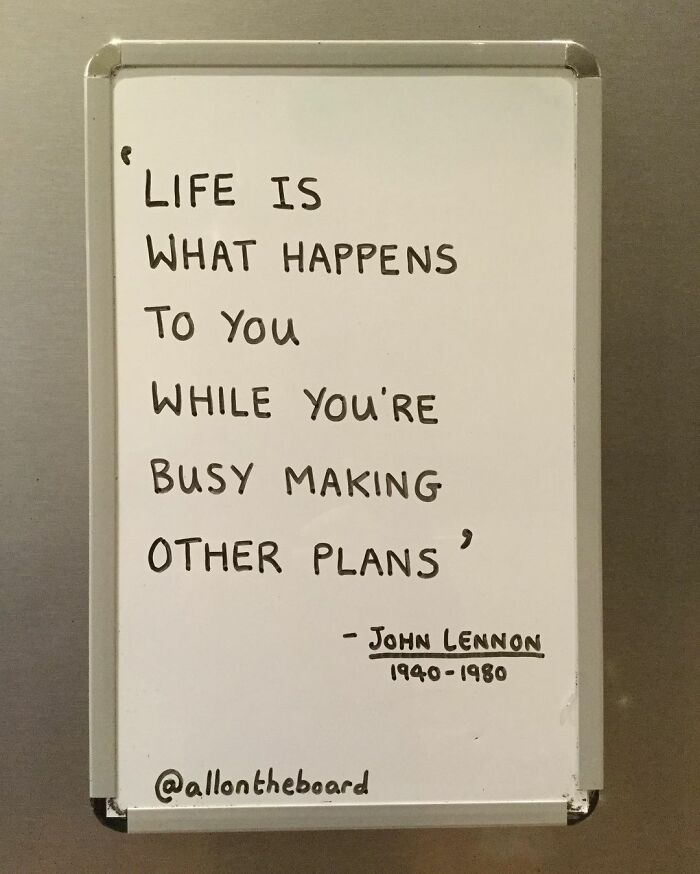 'LIFE IS
WHAT HAPPENS
TO YOU
WHILE YOU'RE
BUSY MAKING
OTHER PLANS'
- JOHN LENNON
1940-1980
@allontheboard